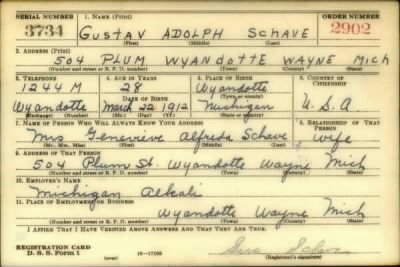 SERIAL NUMBER 1. NAME (Print) ORDER NUMBER
3734 GUSTAV ADOLPH SCHAVE 2902
(First) (Middle) (Last)
2. ADDRESS (Print)
504 PLUM WYANDOTTE WAYNE MICH
(Number and street or R. F. D. number) (Town) (County) (State)
3. TELEPHONE 4. AGE IN YEARS 5. PLACE OF BIRTH 6. COUNTRY OF CITIZENSHIP
1244 M 28 Wyandotte
DATE OF BIRTH (Town or county)
Wyandotte March 22 1912 Michigan U.S.A
(Exchange) (Mo.) (Day) (Yr.) (State or country)
7. NAME OF PERSON WHO WILL ALWAYS KNOW YOUR ADDRESS 8. RELATIONSHIP OF THAT PERSON
Mrs Genevieve Alfreda Schave wife
(Mr., Mrs., Miss) (First) (Middle) (Last)
9. ADDRESS OF THAT PERSON
504 Plum St. Wyandotte Wayne Mich
(Number and street or R. F. D. number) (Town) (County) (State)
10. EMPLOYER'S NAME
Michigan Alkali
11. PLACE OF EMPLOYMENT OR BUSINESS
Wyandotte Wayne Mich
(Number and street or R. F. D. number) (Town) (County) (State)
I AFFIRM THAT I HAVE VERIFIED ABOVE ANSWERS AND THAT THEY ARE TRUE.
REGISTRATION CARD
D. S. S. Form 1 16-17105 Schave
(Registrant's signature)